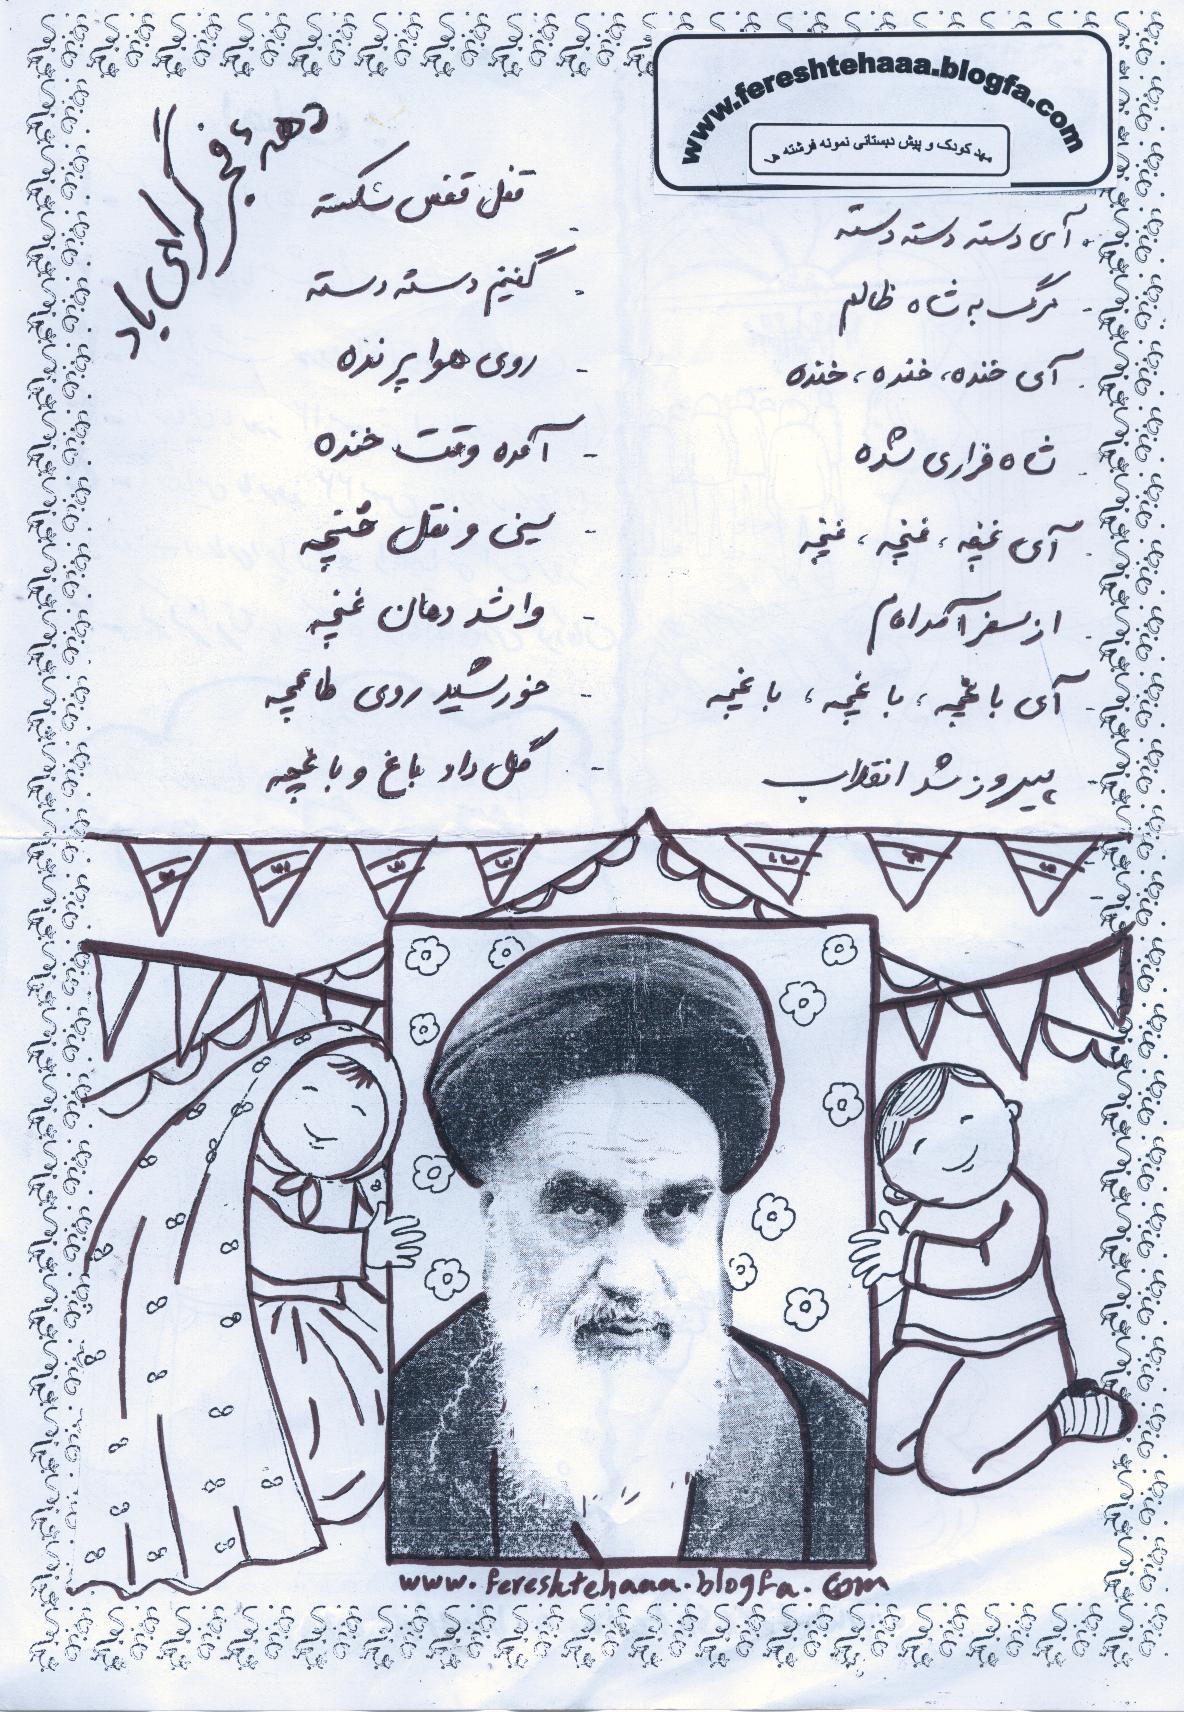 www.fereshtehaaa.blogfa.com
مهد کودک و پیش دبستانی نمونه فرشته ها
دههٔ فجر گرامی باد
آی دسته دسته دسته
قفل قفس شکسته
مرگ به شاه ظالم
گفتیم دسته دسته
آی خنده، خنده، خنده
روی هوا پرنده
شاه فراری شده
آمده وقت خنده
آی غنچه، غنچه، غنچه
سینی و نقل خنچه
از سفر آمد امام
وا شد دهان غنچه
آی باغچه، باغچه، باغچه
خورشید روی طاقچه
پیروز شد انقلاب
گل داد باغ و باغچه
www.fereshtehaaa.blogfa.com